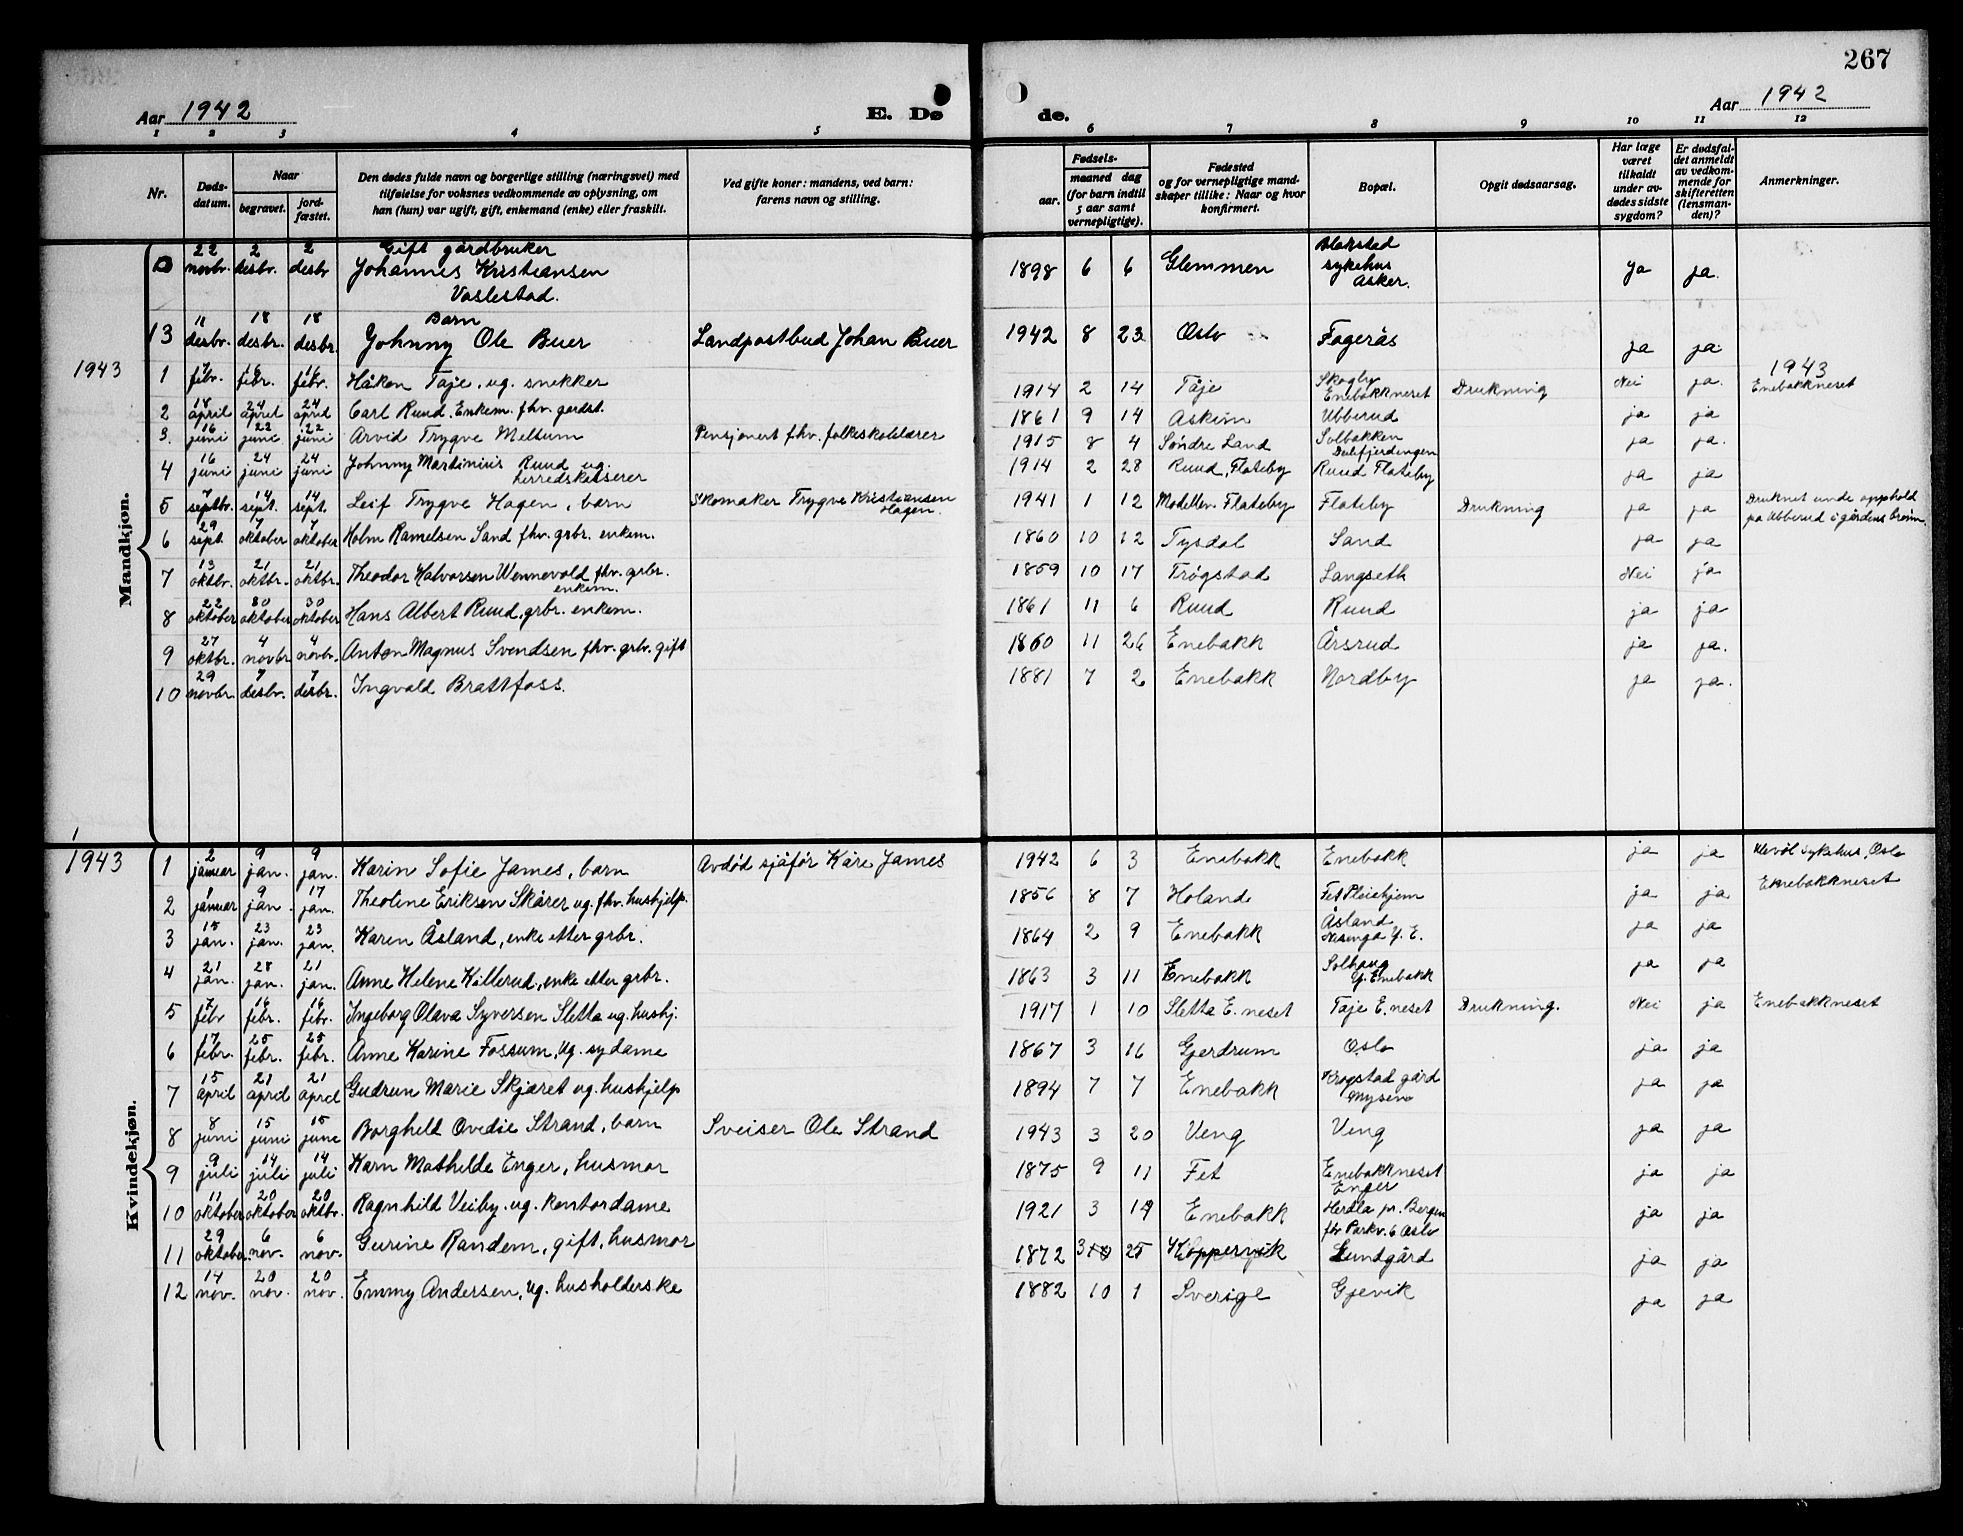 267
Aar 1942
E. Dø
de.
Aar 1942
1 2 3 4 5 6 7 8 9 10 11 12
Nr.
Døds-
datum.
Naar
begravet.
jord-
fæstet.
Den dødes fulde navn og borgerlige stilling (næringsvei) med
tilføielse for voksnes vedkommende av oplysning, om
han (hun) var ugift, gift, enkemand (enke) eller fraskilt.
Ved gifte koner: mandens, ved barn:
farens navn og stilling.
Fødsels-
aar.
maaned dag
(for barn indtil
5 aar samt
vernepligtige).
Fødested
og for vernepligtige mand-
skaper tillike: Naar og hvor
konfirmert.
Bopæl.
Opgit dødsaarsag.
Har læge
været
tilkaldt
under av-
dødes sidste
sygdom?
Er dødsfal-
det anmeldt
av vedkom-
mende for
skifteretten
(lensman-
den)?
Anmerkninger.
Mandkjøn.
22 novbr. 2 desbr. 2 desbr Gift gårdbruker
Johannes Kristiansen
Vaslestad. 1898 6 6 Glemmen Blakstad
sykehus
Asker. ja ja.
13 11 desbr. 18 desbr. 18 desbr. Barn
Johnny Ole Buer Landpostbud Johan Buer 1942 8 23 Oslo Fagerås ja ja.
1943
1943
1 7 febr. 16 febr. 16 febr. Håkon Taje, ug. snekker 1914 2 14 Tåje Skogby
Enebakkneset Drukning Nei ja. Enebakkneset
2 18 april 24 april 24 april Carl Ruud. Enkem. fhv. gardst. 1861 9 14 Askim Ubberud ja ja
3. 16 juni 22 juni 22 juni Arvid Trygve Melsum Pensjonert fhv. folkeskolelærer 1915 8 4 Søndre Land Solbakken
Dalefjerdingen ja ja.
4 16 juni 24 juni 24 juni Johnny Martinius Ruud ug.
herredskasserer 1914 2 28 Ruud, Flateby Ruud Flateby ja ja
5 7 septbr. 14 sept. 14 sept. Leif Trygve Hagen, barn Skomaker Trygve Kristiansen
Hagen. 1941 1 12 Flateby Flateby Drukning ja ja Druknet unde opphold
på Ubberud i gårdens brønn.
6 29 sept. 7 oktober 7 oktober Holm Ramelsen Sand fhv. grbr. enkem. 1860 10 12 Tysdal Sand ja ja
7 13 oktbr. 21 oktbr. 21 oktbr. Theodor Halvorsen Wennevold fhv. grbr.
enkem. 1859 10 17 Trøgstad Langseth Nei ja
8 22 oktober 30 oktober 30 oktober Hans Albert Ruud, grbr. enkem. 1861 11 6 Ruud Ruud ja ja
9 27 oktbr. 4 novbr 4 novbr. Anton Magnus Svendsen fhv. grbr. gift 1860 11 26 Enebakk Årsrud ja ja.
10 29 novbr. 7 desbr. 7 desbr. Ingvald Brattfoss. 1881 7 2 Enebakk Nordby ja ja.
Kvindekjøn.
1943
1 2 januar 9 jan. 9 jan. Karin Sofie James, barn Avdød sjåfør Kåre James 1942 6 3 Enebakk Enebakk ja ja Ulevål sykehus, Oslo
2 1 januar 9 jan. 17 jan. Theoline Eriksen Skårer ug. fhv. hushjelp. 1856 8 7 Høland Fet Pleiehjem ja ja. Enebakkneset
3 15 jan. 23 jan. 23 jan. Karen Åsland, enke etter grbr. 1864 2 9 Enebakk Åsland
Y. E. ja ja
4 21 jan. 28 jan. 21 jan. Anne Helene Killerud, enke etter grbr. 1863 3 11 Enebakk Solhaug
Y. Enebakk ja ja
5 7 febr 16 febr. 16 febr. Ingeborg Olava Syversen Sletta ug. hushj. 1917 1 10 Sletta E. neset Taje E. neset Drukning. Nei ja Enebakkneset
6 17 febr. 25 febr. 25 febr. Anne Karine Fossum, ug. sydame 1867 3 16 Gjerdrum Oslo ja ja
7 15 april 21 april 21 april Gudrun Marie Skjæret ug. hushjelp 1894 7 7 Enebakk Krogstad gård
Mysen ja ja
8 8 juni 15 juni 15 june Borghild Ovedie Strand, barn Sveiser Ole Strand 1943 3 20 Veng Veng ja ja
9 9 juli 14 juli 14 juli Karn Mathilde Enger, husmor 1875 9 11 Fet Enebakkneset
Enger ja ja
10 11 oktober 20 oktober 20 oktbr. Ragnhild Veiby. ug. kontordame 1921 3 19 Enebakk Herdla pr. Bergen
fhv Parkv. 6 Oslo ja ja
11 29 oktober. 6 nov. 6 nov. Gurine Randem, gift, husmor 1872 3 25 Koppervik Lundgård ja ja
12 14 nov. 20 nov. 20 nov. Emmy Andersen, ug. husholderske 1882 10 1 Sverige Gjevik ja ja